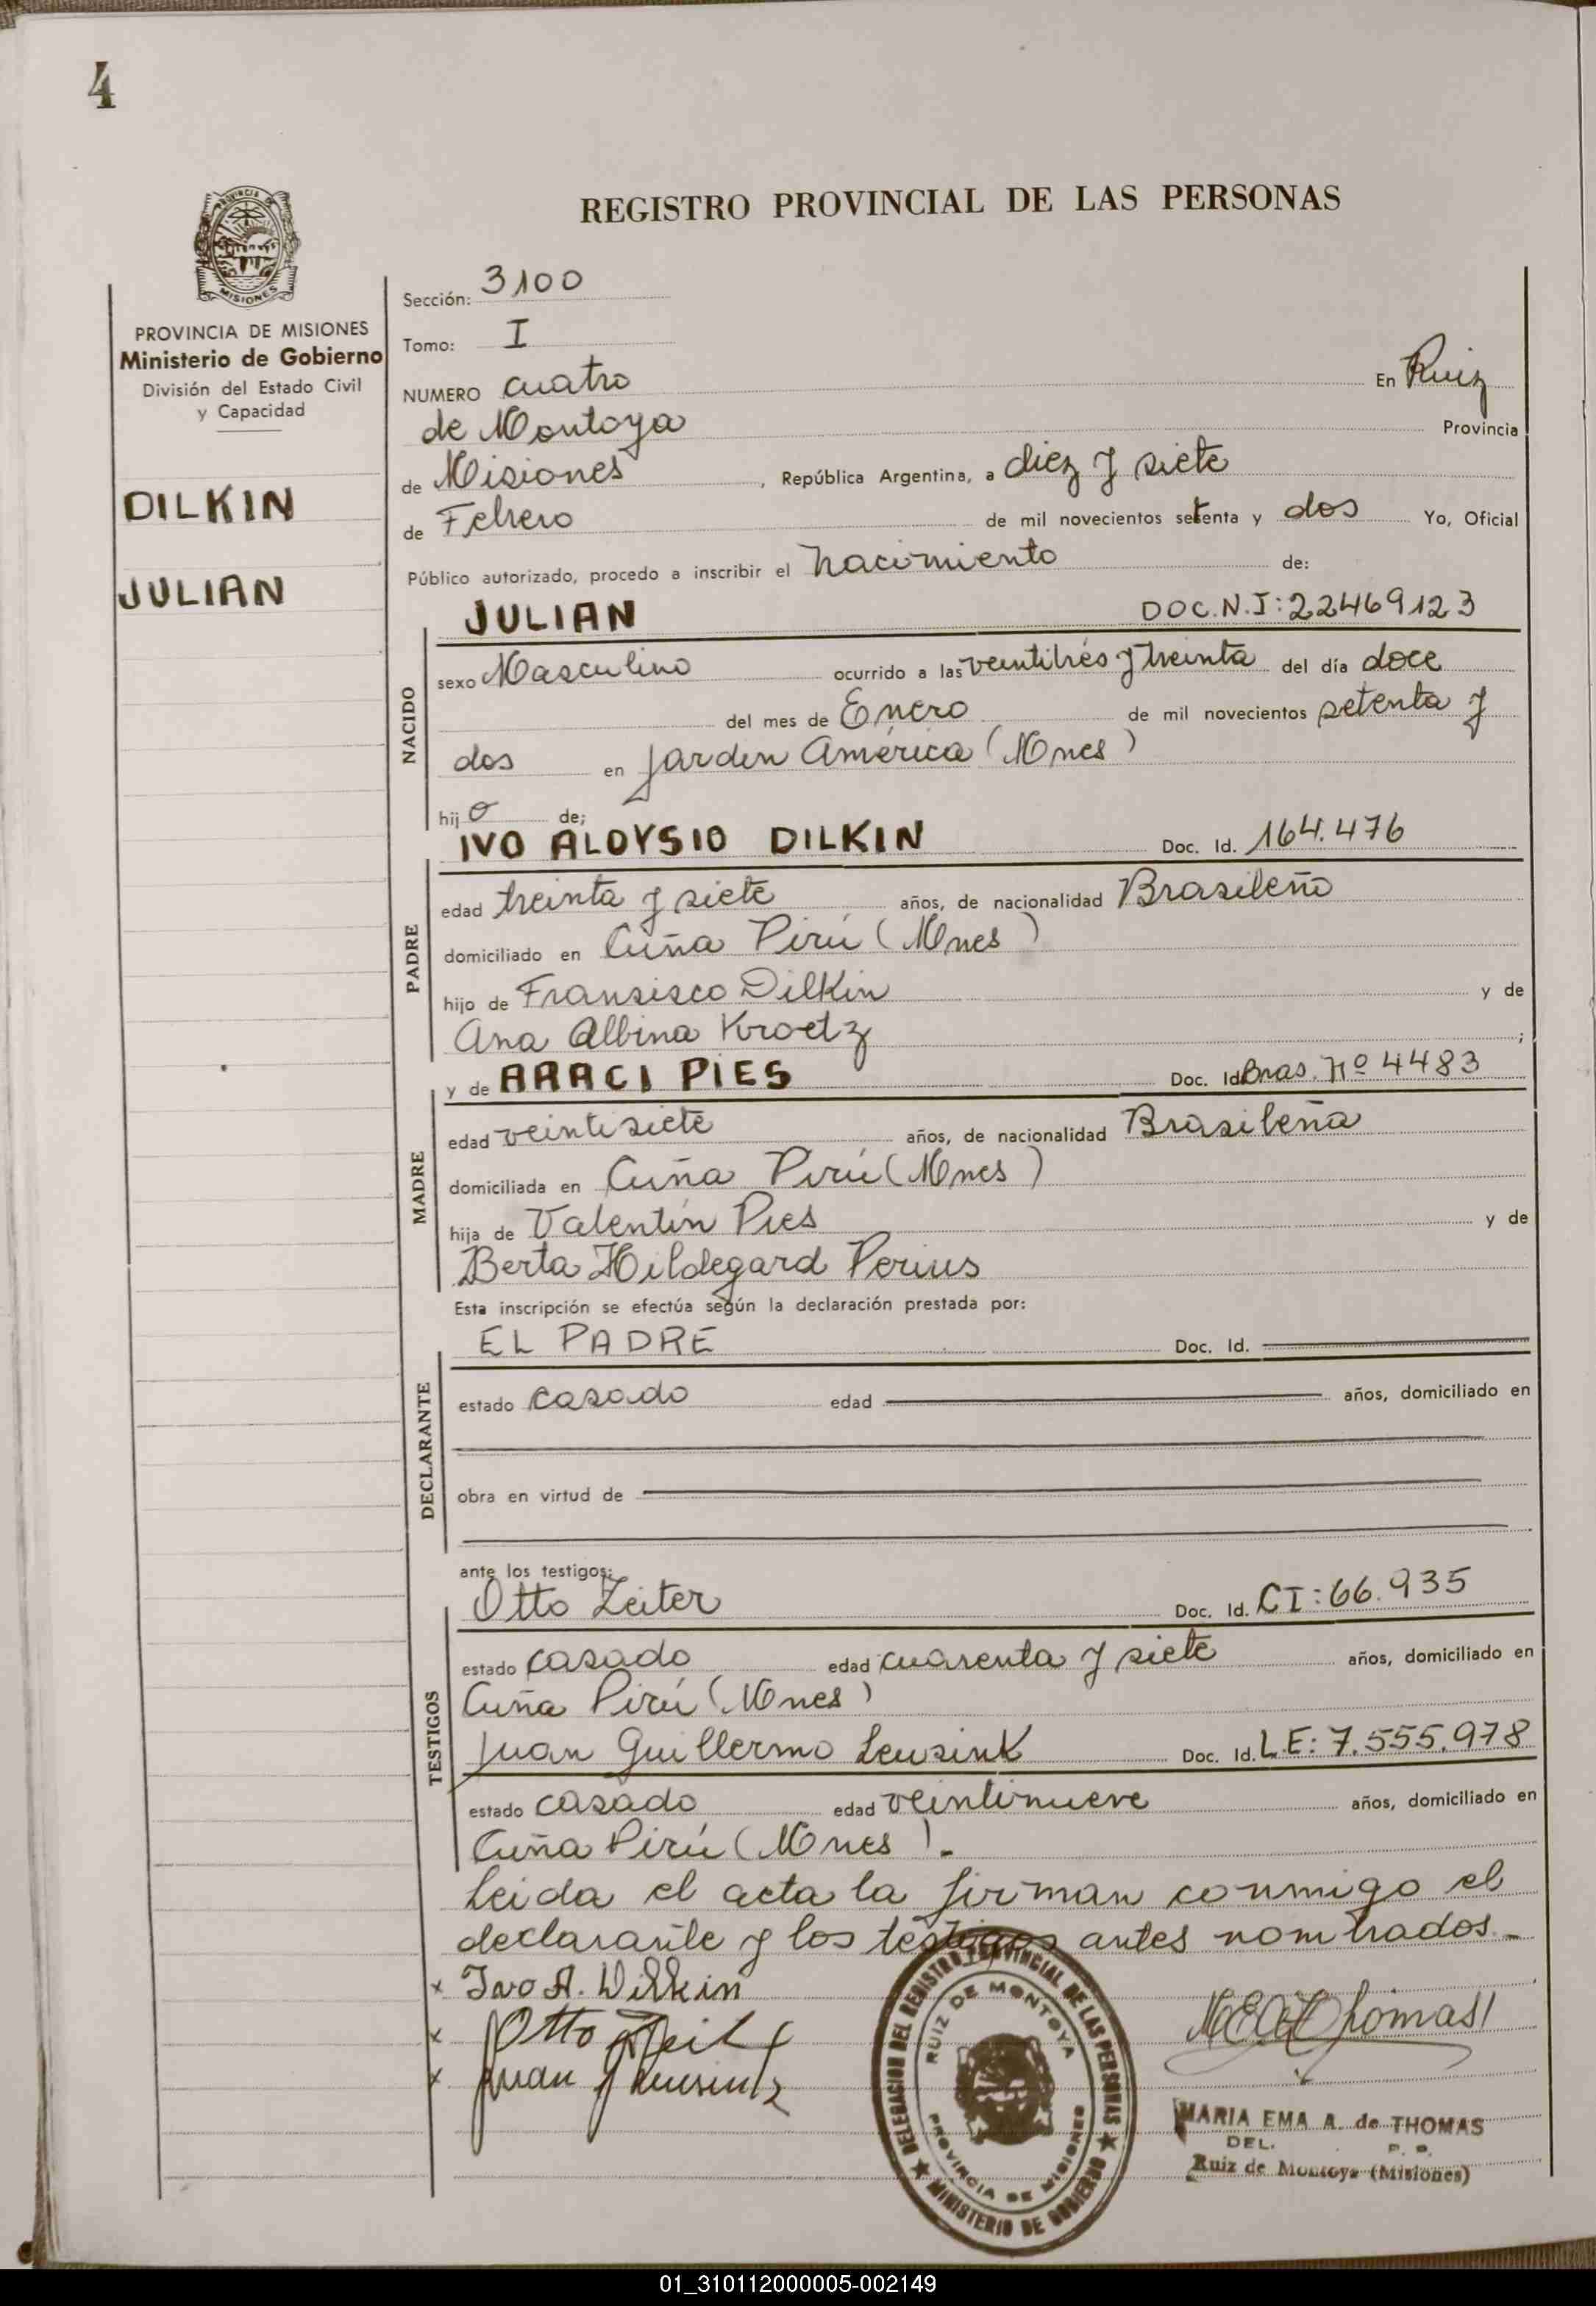 4
REGISTRO PROVINCIAL DE LAS PERSONAS
PROVINCIA DE MISIONES
Ministerio de Gobierno
División del Estado Civil
y Capacidad
DILKIN
JULIAN
Sección: 3100
Tomo: I
NUMERO cuatro En Ruiz
de Montoya Provincia
de Misiones, República Argentina, a diez y siete
de Febrero de mil novecientos setenta y dos Yo, Oficial
Público autorizado, procedo a inscribir el nacimiento de:
JULIAN DOC.N.I:22469123
NACIDO
sexo Masculino ocurrido a las veintitrés y treinta del día doce
del mes de Enero de mil novecientos setenta y
dos en Jardin América (Mnes)
hijo de;
IVO ALOYSIO DILKIN Doc. Id. 164.476
PADRE
edad treinta y siete años, de nacionalidad Brasileño
domiciliado en Cuña Pirú (Mnes)
hijo de Fransisco Dilkin y de
Ana Albina Kroetz ;
y de ARACI PIES Doc. Id Bras. Nº 4483
MADRE
edad veintisiete años, de nacionalidad Brasileña
domiciliada en Cuña Pirú (Mnes)
hija de Valentín Pies y de
Berta Hildegard Perius
Esta inscripción se efectúa según la declaración prestada por:
EL PADRE Doc. Id.
DECLARANTE
estado casado edad años, domiciliado en
obra en virtud de
ante los testigos:
Otto Zeiter Doc. Id. CI: 66.935
TESTIGOS
estado casado edad cuarenta y siete años, domiciliado en
Cuña Pirú (Mnes)
Juan Guillermo Leusink Doc. Id. L.E: 7.555.978
estado casado edad veintinueve años, domiciliado en
Cuña Pirú (Mnes).
Leida el acta la firman conmigo el
declarante y los testigos antes nombrados.-
x Ivo A. Dilkin
x Otto
x Juan
DELEGACION DEL REGISTRO PROVINCIAL DE LAS PERSONAS
RUIZ DE MONTOYA
PROVINCIA DE MISIONES
★ MINISTERIO DE GOBIERNO ★
MARIA EMA A. de THOMAS
DEL. P. P.
Ruiz de Montoya (Misiones)
01_310112000005-002149